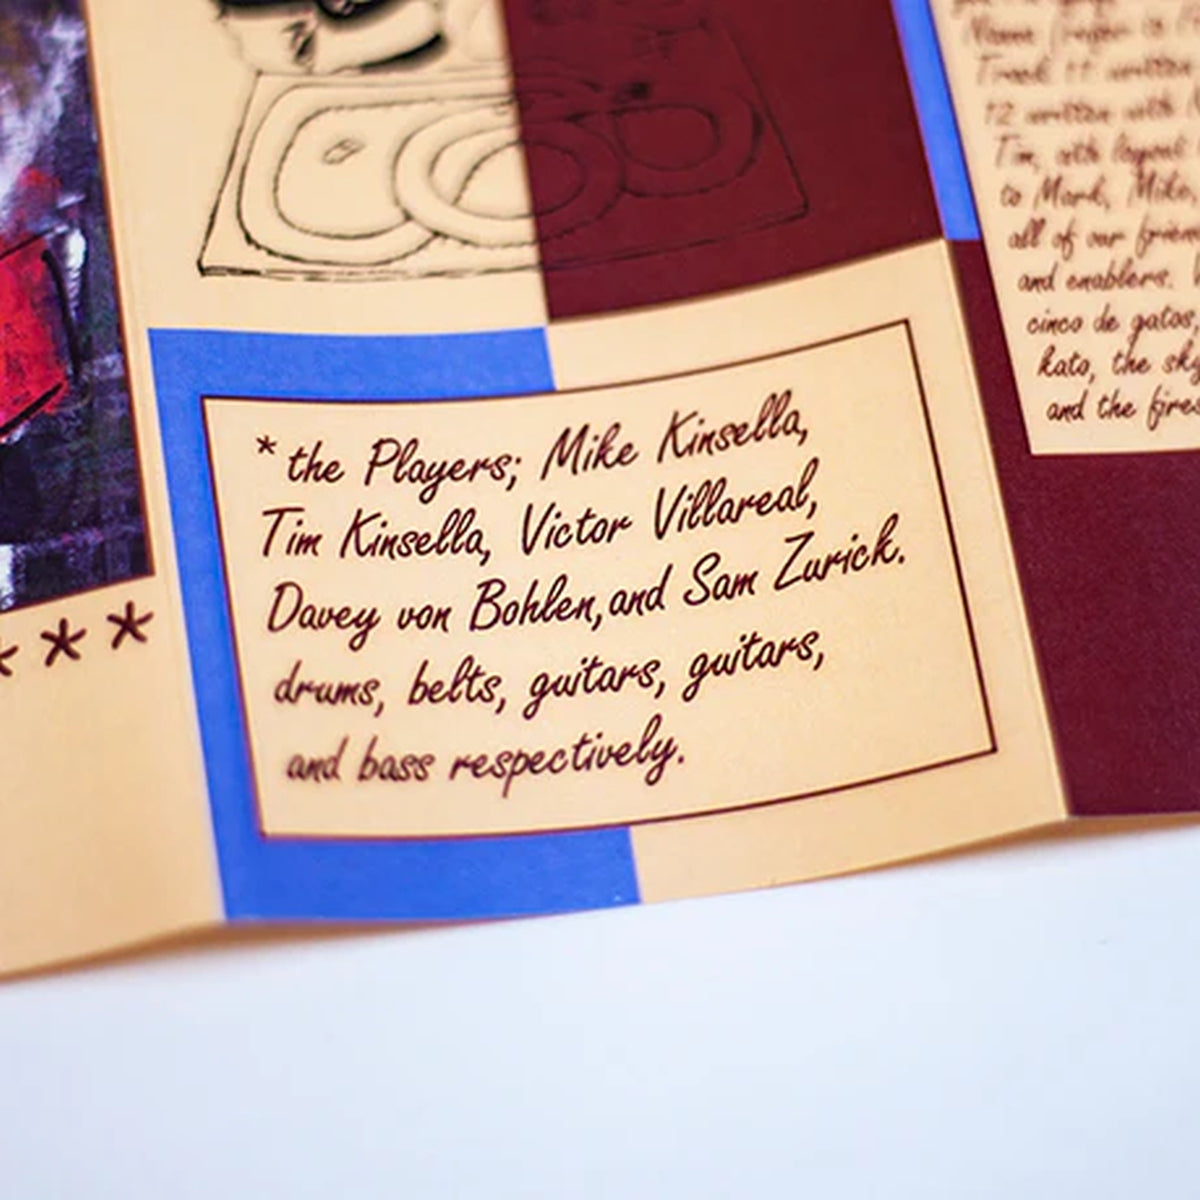 * the Players; Mike Kinsella,
Tim Kinsella, Victor Villareal,
Davey von Bohlen, and Sam Zurick.
drums, belts, guitars, guitars,
and bass respectively.
***
Track 11 written
12 written with
Tim,
to Mark, Mike,
all of our
and enablers.
cinco de gatos,
kato, the
and the